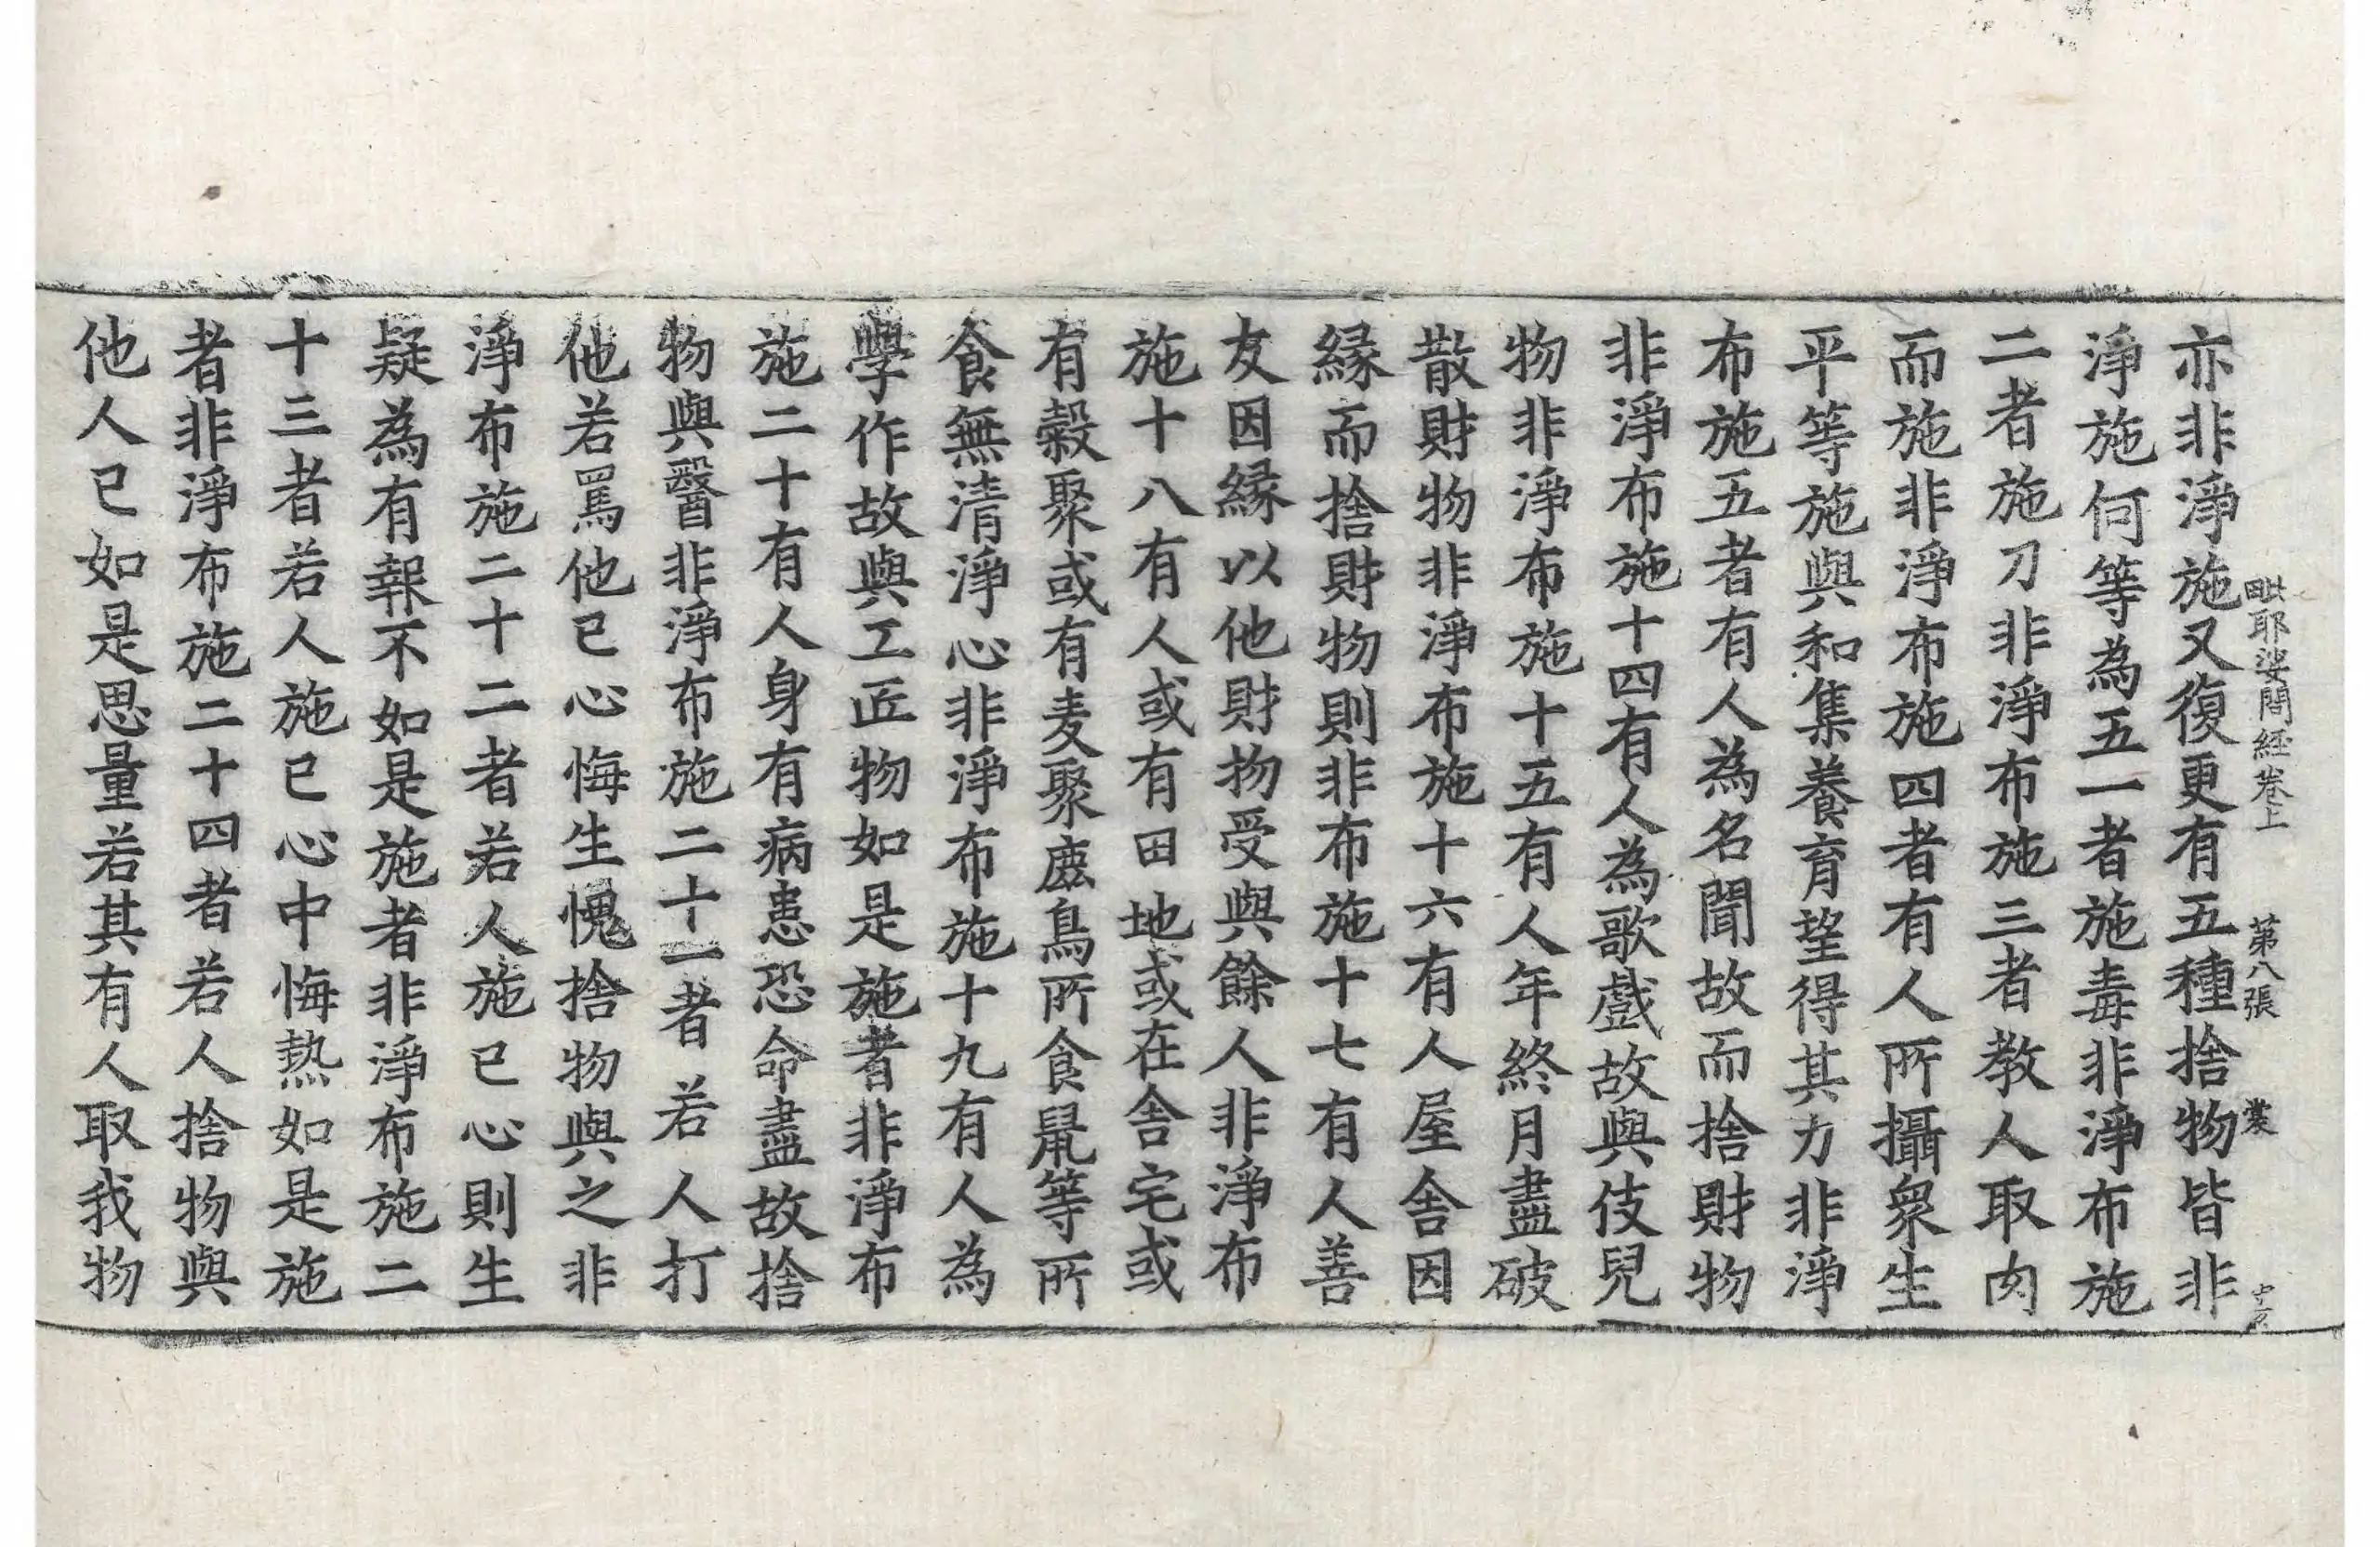 毗耶娑問經卷上 第八張 裳
亦非淨施又復更有五種捨物皆非
淨施何等為五一者施毒非淨布施
二者施刀非淨布施三者教人取肉
而施非淨布施四者有人所攝衆生
平等施與和集養育望得其力非淨
布施五者有人為名聞故而捨財物
非淨布施十四有人為歌戲故與伎兒
物非淨布施十五有人年終月盡破
散財物非淨布施十六有人屋舍因
縁而捨財物則非布施十七有人善
友因縁以他財物受與餘人非淨布
施十八有人或有田地或在舍宅或
有穀聚或有麦聚䴢鳥所食鼠等所
食無清淨心非淨布施十九有人為
學作故與工匠物如是施者非淨布
施二十有人身有病患恐命盡故捨
物與醫非淨布施二十一者若人打
他若罵他已心悔生愧捨物與之非
淨布施二十二者若人施已心則生
疑為有報不如是施者非淨布施二
十三者若人施已心中悔熱如是施
者非淨布施二十四者若人捨物與
他人已如是思量若其有人取我物